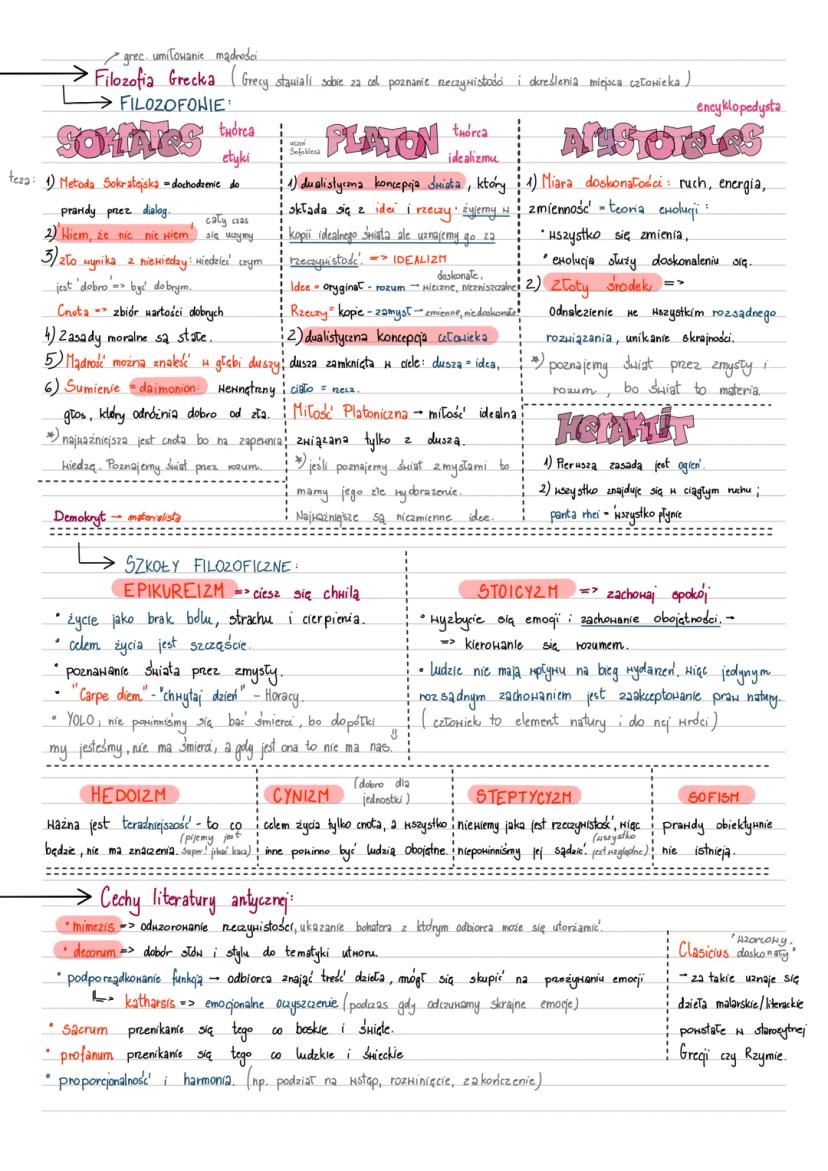 grec. umiłowanie mądrości
Filozofia Grecka (Grecy stawiali sobie za cel poznanie rzeczywistości i określenia miejsca człowieka)
FILOZOFOWIE:
SOKRATES twórca etyki
teza: 1) Metoda Sokratejska = dochodzenie do
prawdy przez dialog.
2) "Wiem, że nic nie wiem" cały czas się uczymy
3) zło wynika z niewiedzy: wiedzieć czym
jest 'dobro' => być dobrym.
Cnota => zbiór wartości dobrych
4) Zasady moralne są stałe.
5) Mądrość można znaleść w głębi duszy
6) Sumienie = daimonion: wewnętrzny
głos, który odróżnia dobro od zła.
*) najważniejsza jest cnota bo na zapewnia
wiedzę. Poznajemy świat przez rozum.
Demokryt → materialista
uczeń Sofoklesa
PLATON twórca idealizmu
1) dualistyczna koncepcja świata, który
składa się z idei i rzeczy: żyjemy w
kopii idealnego świata ale uznajemy go za
rzeczywistość. => IDEALIZM
doskonałe,
Idee = oryginał - rozum → wieczne, niezniszczalne
Rzeczy = kopie - zamysł → zmienne, niedoskonałe
2) dualistyczna koncepcja człowieka
dusza zamknięta w ciele: dusza = idea,
ciało = rzecz.
Miłość Platoniczna → miłość idealna
związana tylko z duszą.
*) jeśli poznajemy świat zmysłami to
mamy jego złe wyobrażenie.
Najważniejsze są niezmienne idee.
encyklopedysta
ARYSTOTELES
1) Miara doskonałości: ruch, energia,
zmienność = teoria ewolucji:
• wszystko się zmienia,
• ewolucja służy doskonaleniu się.
2) Złoty środek =>
Odnalezienie we wszystkim rozsądnego
rozwiązania, unikanie skrajności.
*) poznajemy świat przez zmysły i
rozum, bo świat to materia.
HERAKLIT
1) Pierwszą zasadą jest ogień.
2) wszystko znajduje się w ciągłym ruchu;
panta rhei - wszystko płynie
SZKOŁY FILOZOFICZNE:
EPIKUREIZM => ciesz się chwilą
• życie jako brak bólu, strachu i cierpienia.
• celem życia jest szczęście.
• poznawanie świata przez zmysły.
• "Carpe diem" - "chwytaj dzień" - Horacy.
• YOLO; nie powinniśmy się bać śmierci, bo dopóki
my jesteśmy, nie ma śmierci, a gdy jest ona to nie ma nas.
STOICYZM => zachowaj spokój
• wyzbycie się emocji i zachowanie obojętności. →
=> kierowanie się rozumem.
• ludzie nie mają wpływu na bieg wydarzeń, więc jedynym
rozsądnym zachowaniem jest zaakceptowanie praw natury.
(człowiek to element natury i do niej wróci)
HEDOIZM
Ważna jest teraźniejszość - to co
będzie, nie ma znaczenia. (pijemy jest super! jebać kaca)
CYNIZM (dobro dla jednostki)
celem życia tylko cnota, a wszystko
inne powinno być ludzią obojętne.
STEPTYCYZM
niewiemy jaka jest rzeczywistość, więc
niepowinniśmy jej sądzić. (wszystko jest względne)
SOFISM
prawdy obiektywnie
nie istnieją.
Cechy literatury antycznej:
• mimezis => odwzorowanie rzeczywistości, ukazanie bohatera z którym odbiorca może się utożsamić.
• decorum => dobór słów i stylu do tematyki utworu.
• podporządkowanie funkcją → odbiorca znając treść dzieła, mógł się skupić na przeżywaniu emocji
katharsis => emocjonalne oczyszczenie (podczas gdy odczuwamy skrajne emocje)
• sacrum przenikanie się tego co boskie i święte.
• profanum przenikanie się tego co ludzkie i świeckie
• proporcjonalność i harmonia. (np. podział na wstęp, rozwinięcie, zakończenie)
Clasicius 'wzorcowy, doskonały'
- za takie uznaje się
dzieła malarskie/literackie
powstałe w starożytnej
Grecji czy Rzymie.